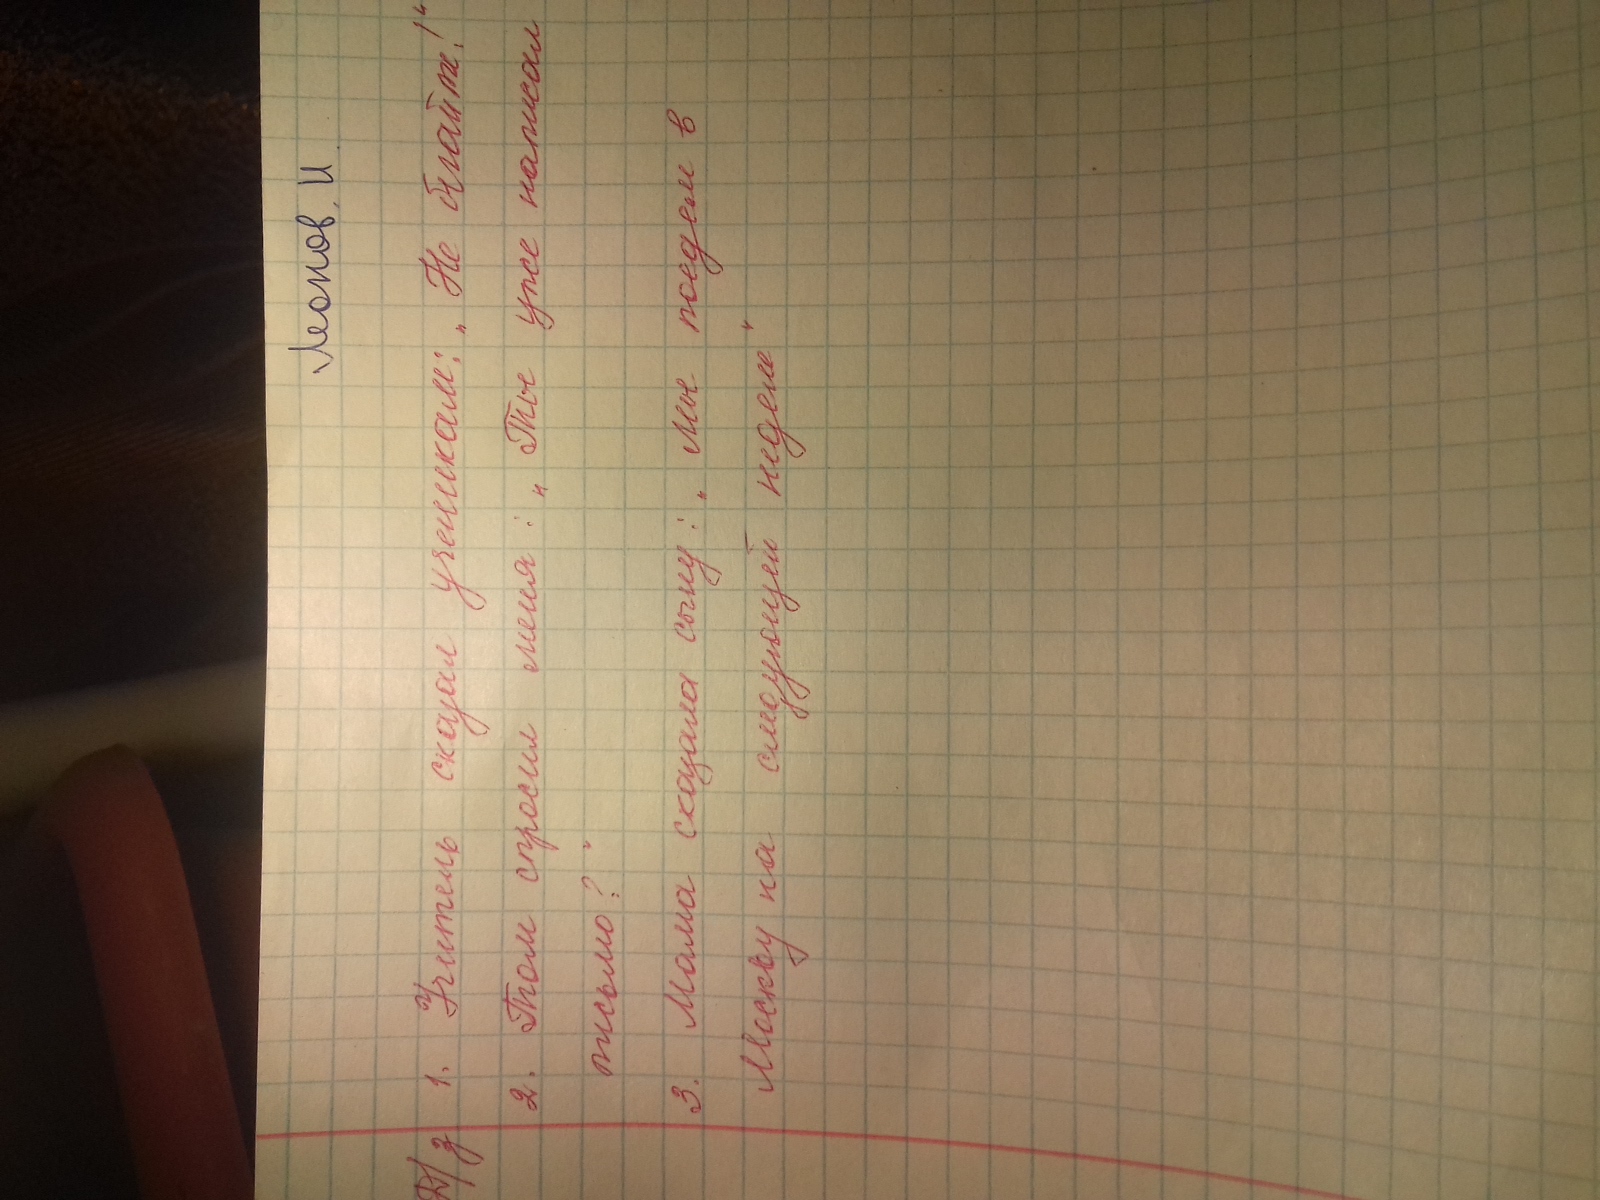 Леонов. И
Д/з 1. Учитель сказал ученикам: „Не бегайте!“
2. Том спросил меня: „Ты уже написал
письмо?“
3. Мама сказала сыну: „Мы поедем в
Москву на следующей неделе“